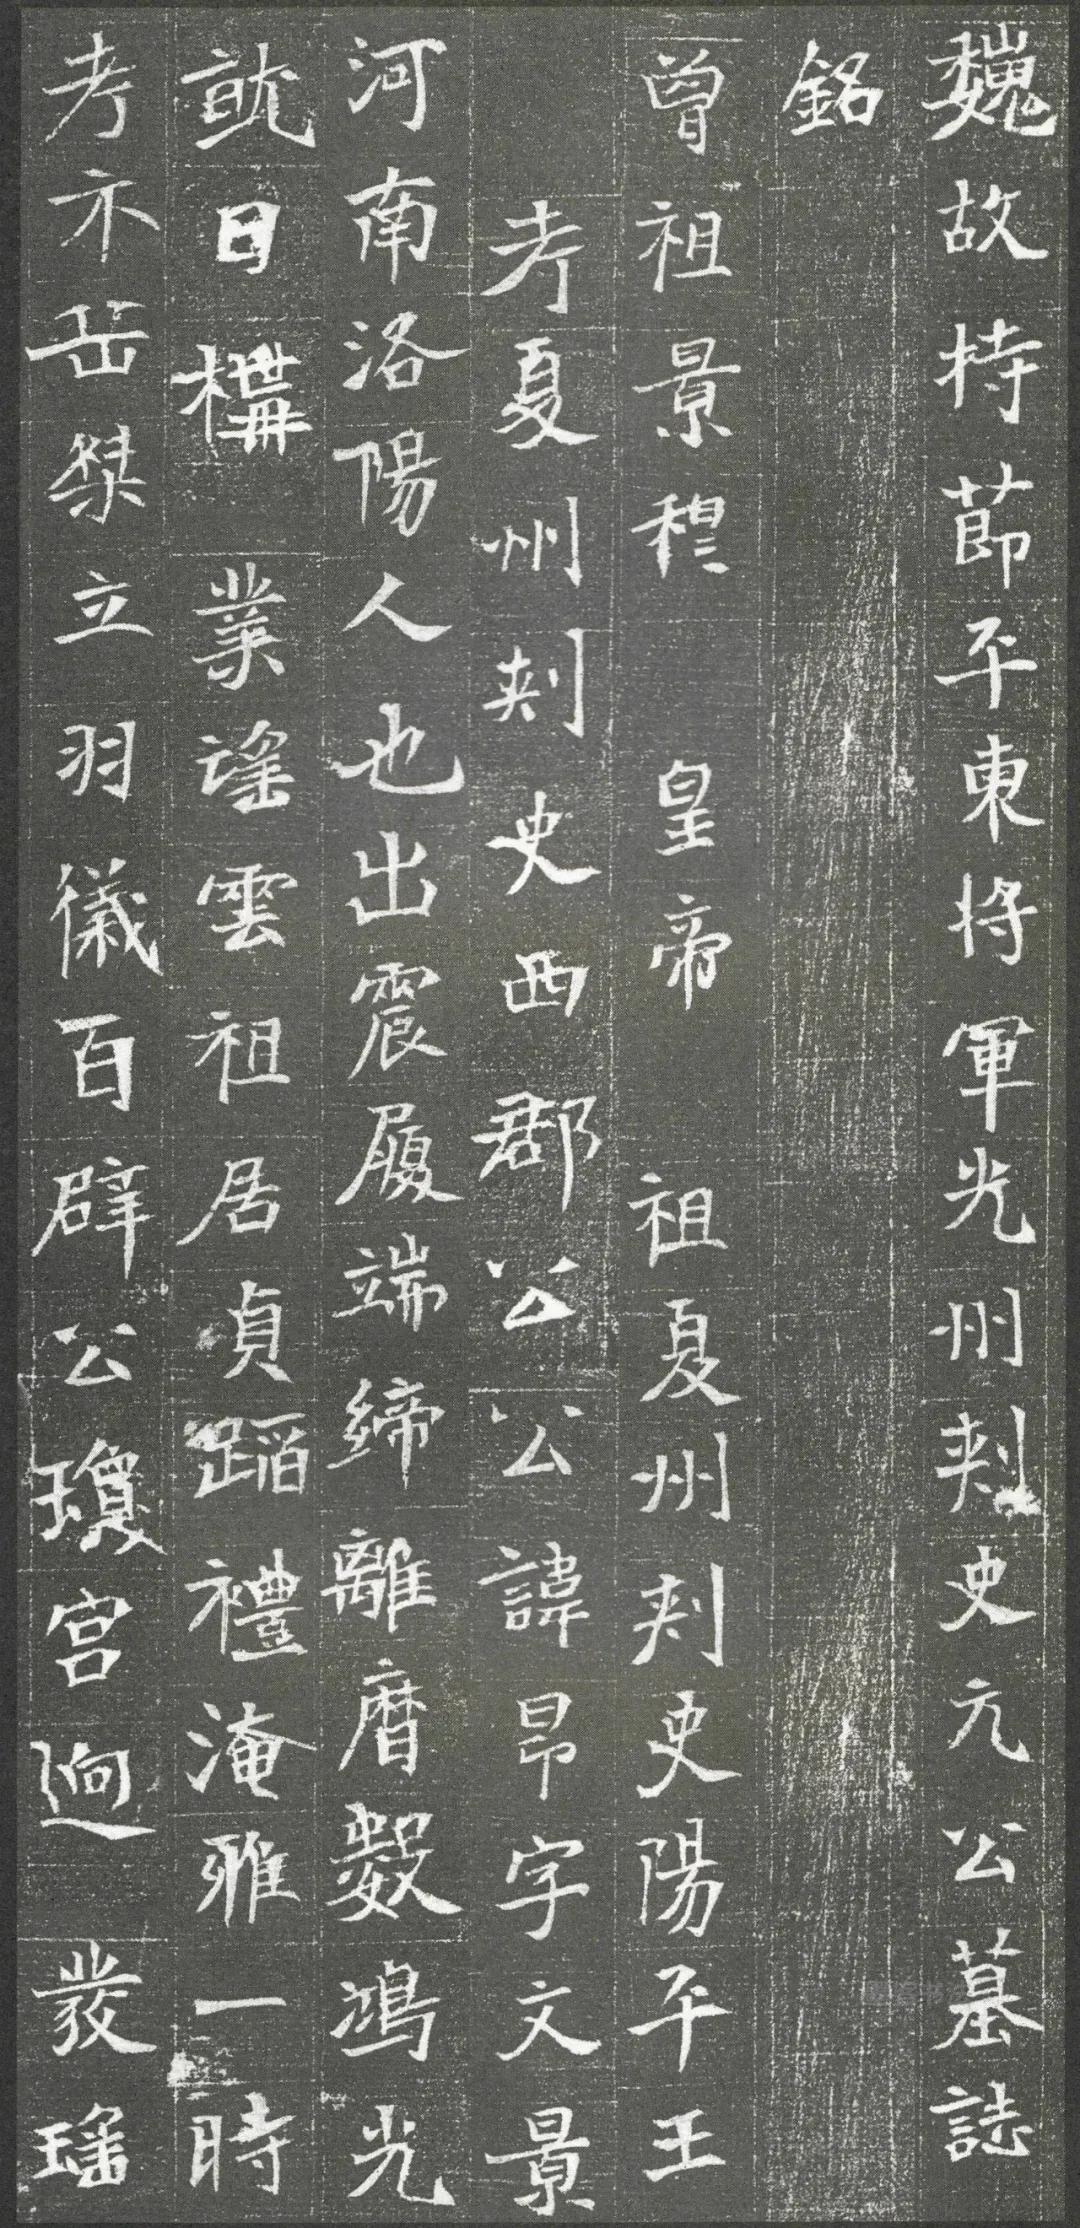 魏故持節平東將軍光州刺史元公墓誌
銘
曾祖景穆　皇帝　祖夏州刺史陽平王
考夏州刺史西郡公公諱昂字文景
河南洛陽人也出震履端締離曆數鴻光
就日構　業謠雲祖居貞蹈禮淹雅一時
考尒岳桀立羽儀百辟公瓊宮迥發瑶